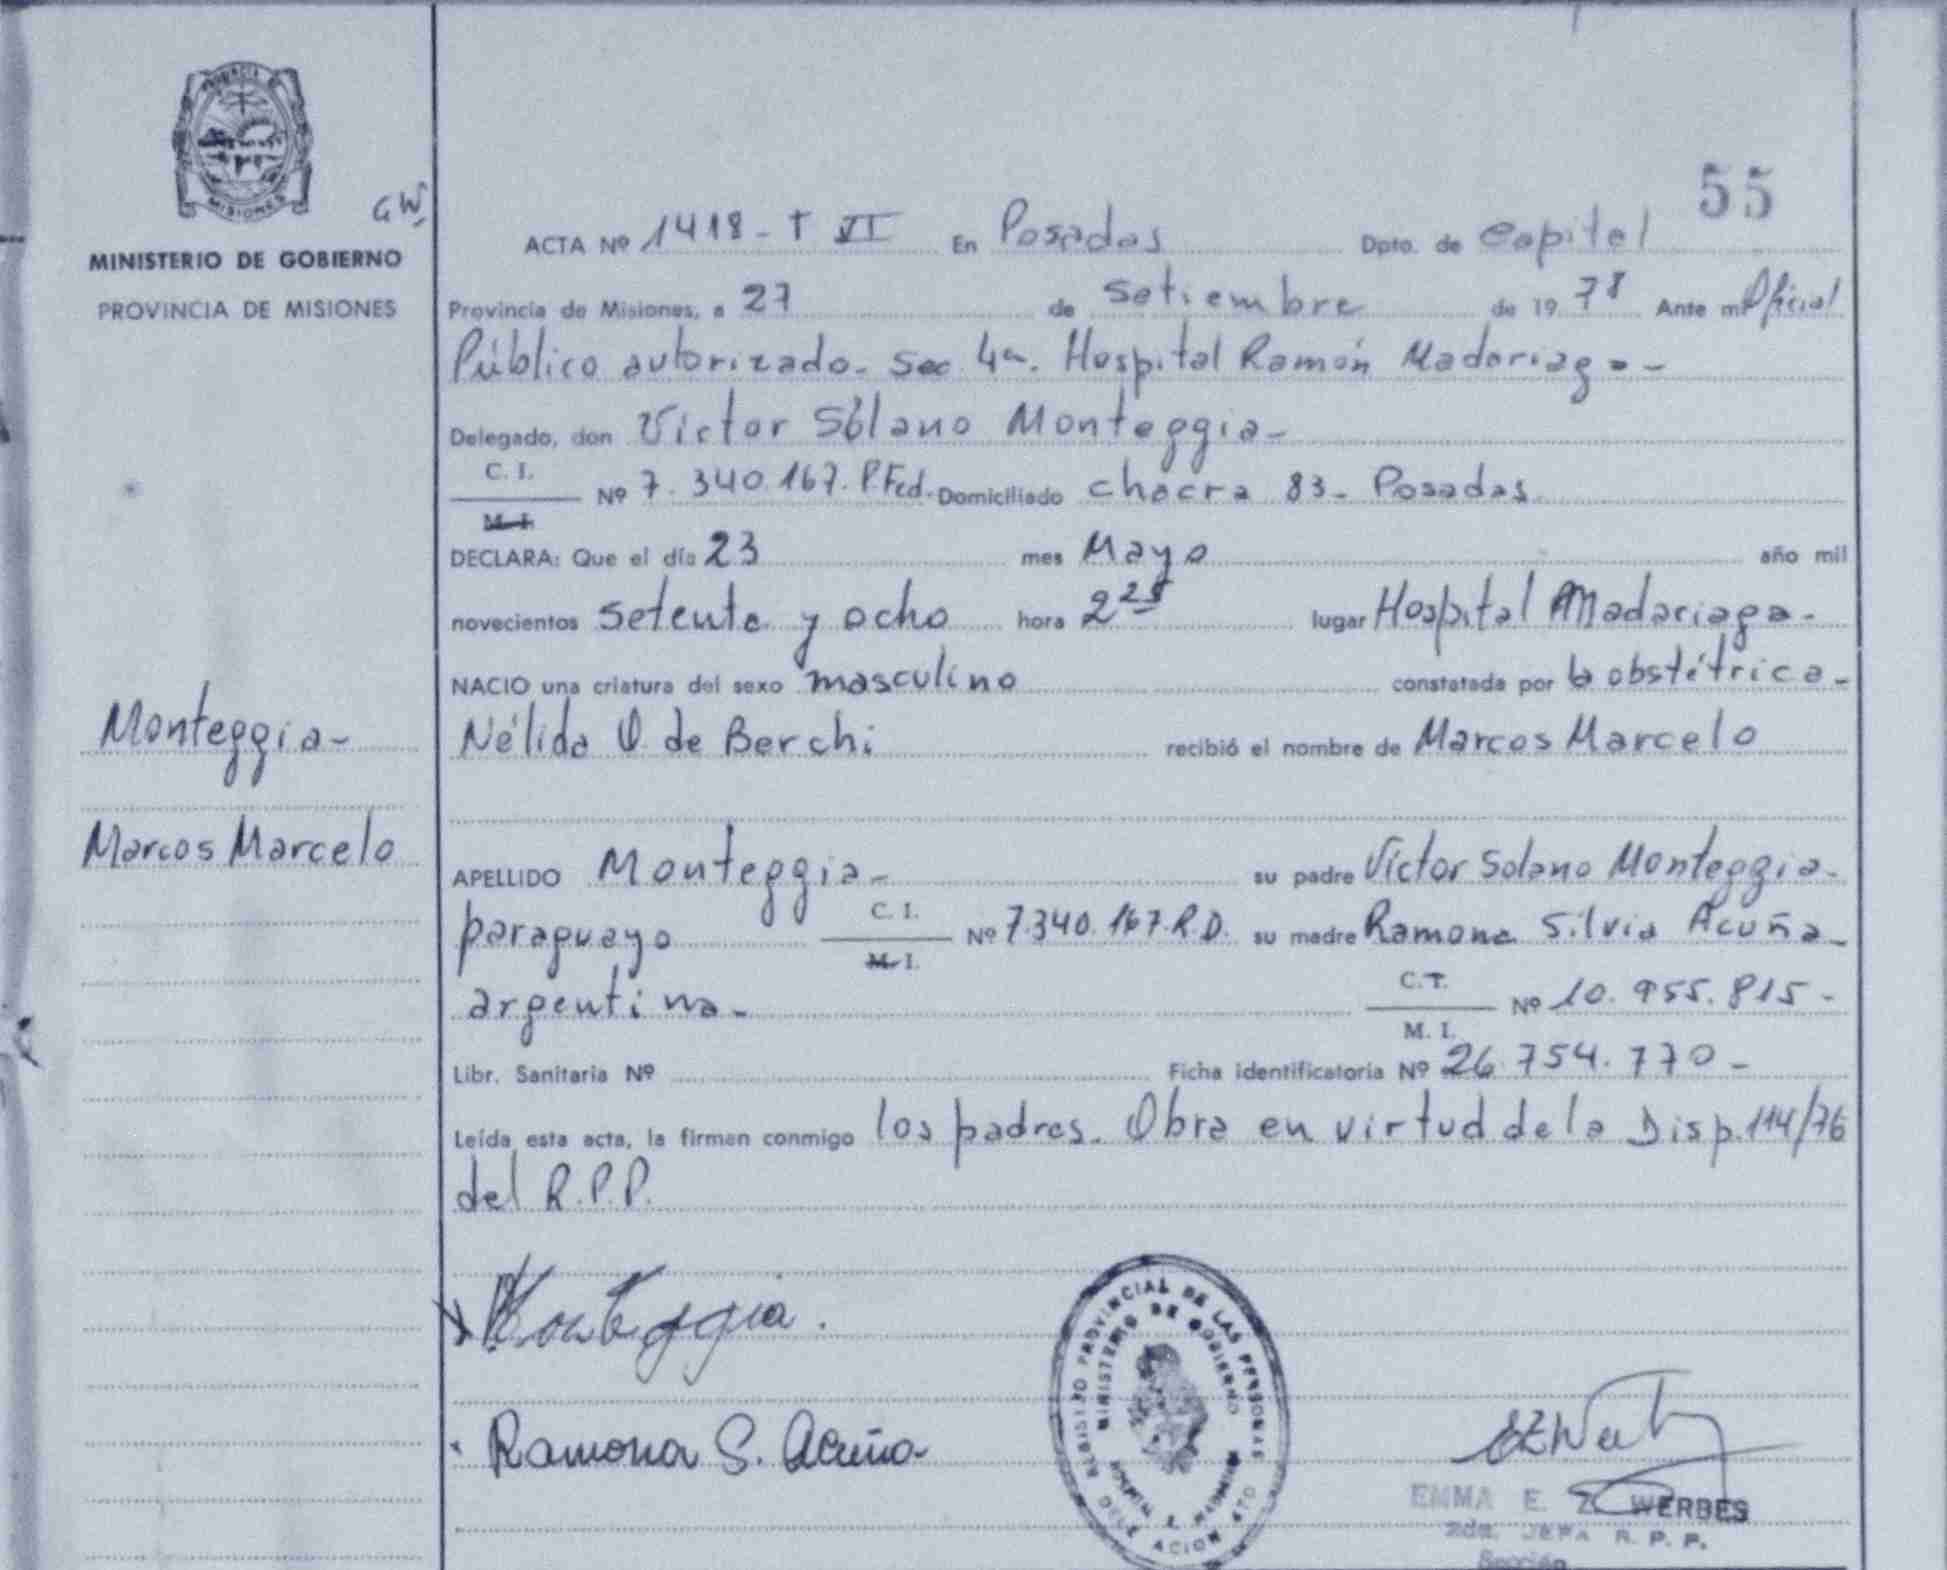 PROVINCIA DE
MISIONES
GW
MINISTERIO DE GOBIERNO
PROVINCIA DE MISIONES
Monteggia-
Marcos Marcelo
55
ACTA Nº 1418 - T VI En Posadas Dpto. de Capital
Provincia de Misiones, a 27 de setiembre de 1978 Ante mí Oficial
Público autorizado- Sec 4a. Hospital Ramón Madariaga-
Delegado, don Víctor Sólano Monteggia-
C. I.
Nº 7.340.167. P. Fed. Domiciliado chacra 83- Posadas
M. I.
DECLARA: Que el día 23 mes Mayo año mil
novecientos setenta y ocho hora 2 25 lugar Hospital Madariaga-
NACIO una criatura del sexo masculino constatada por la obstétrica-
Nélida O. de Berchi recibió el nombre de Marcos Marcelo
APELLIDO Monteggia- su padre Víctor Solano Monteggia-
paraguayo C. I. Nº 7.340.167. su madre Ramona Silvia Acuña-
M. I.
argentina- C. I. Nº 10.955.815-
M. I.
Libr. Sanitaria Nº Ficha identificatoria Nº 26.754.770-
Leída esta acta, la firman conmigo los padres. Obra en virtud de la Disp. 114/76
del R.P.P.
Monteggia.
Ramona S. Acuña
REGISTRO PROVINCIAL DE LAS PERSONAS
MINISTERIO DE GOBIERNO
EMMA E. Z. WERBES
2da. JEFA R. P. P.
Sección